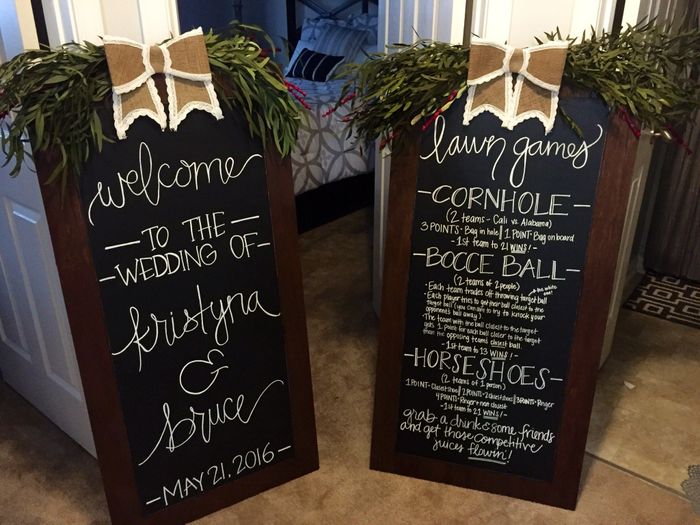 welcome
TO THE
WEDDING OF
Kristyna
&
bruce
MAY 21, 2016
lawn games
CORNHOLE
(2 teams - Cali vs. Alabama)
3 POINTS - Bag in hole || 1 POINT - Bag on board
- 1st team to 21 WINS! -
BOCCE BALL
(2 teams of 2 people)
• Each team trades off throwing target ball
the white one!
• Each player tries to get their ball closest to the
target ball (you can also try to knock your
opponents ball away)
• The team with the ball closest to the target
gets 1 point for each ball closer to the target
than the opposing teams closest ball.
- 1st team to 13 WINS! -
HORSESHOES
(2 teams of 1 person)
1 POINT - Closest shoe || 2 POINTS - 2 closest shoes || 3 POINTS - Ringer
4 POINTS - Ringer + next closest
- 1st team to 21 WINS! -
grab a drink & some friends
and get those competitive
juices flowin'!